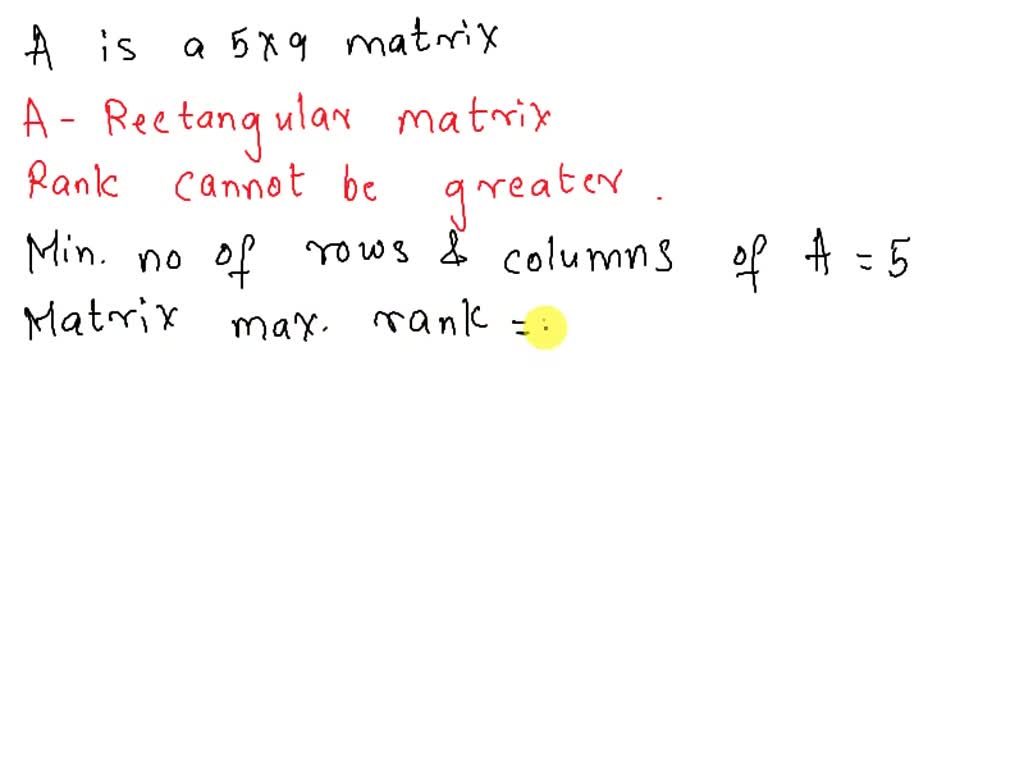 A is a 5x9 matrix
A - Rectangular matrix
Rank cannot be greater.
Min. no of rows & columns of A = 5
Matrix max. rank =